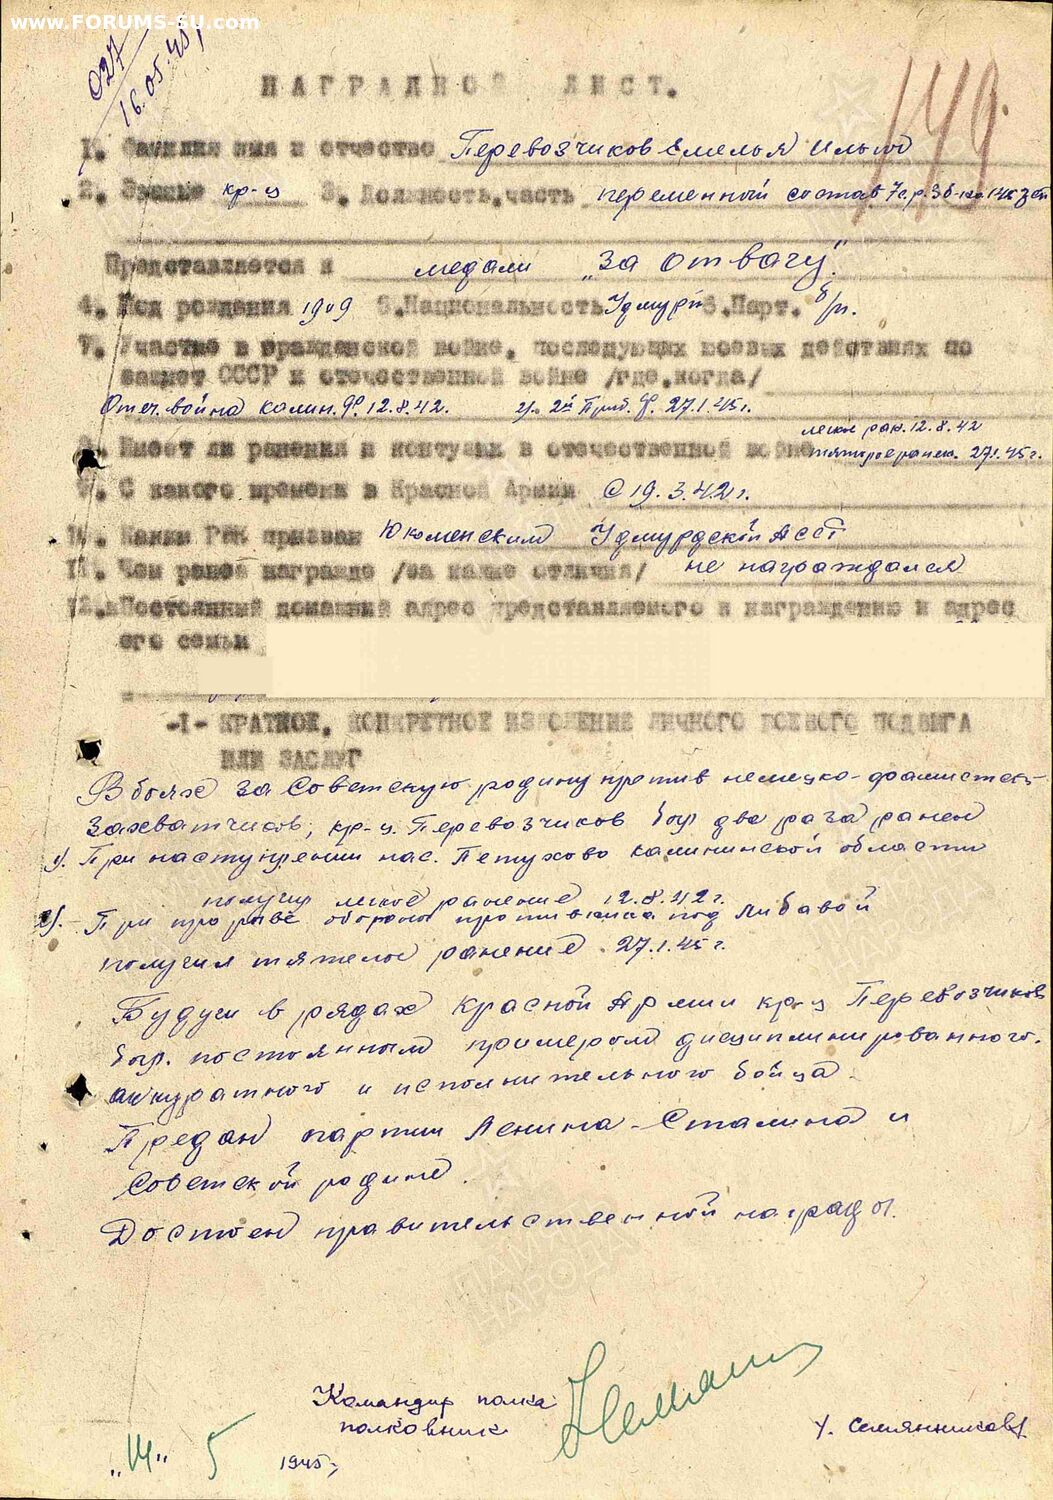 www.FORUMS-SU.com
027
16.05.45г
НАГРАДНОЙ ЛИСТ.
149.
1. Фамилия имя и отчество Перевозчиков Емельян Ильич
2. Звание кр-ц 3. Должность, часть переменный состав 7с.р. 3б-на 146 зсп
Представляется к медали "За отвагу".
4. Год рождения 1909 5. Национальность Удмурт 6. Парт. б/п.
7. Участие в гражданской войне, последующих боевых действиях по
защите СССР и отечественной войне /где, когда/
Отеч. война калин. Ф. 12.8.42. и 2й Приб. Ф. 27.1.45г.
легкое ран. 12.8.42
8. Имеет ли ранения и контузии в отечественной войне тяжелое ранен. 27.1.45г.
9. С какого времени в Красной Армии С 19.3.42г.
10. Каким РВК призван Юкаменским Удмурдской АССР
11. Чем ранее награжден /за какие отличия/ не награждался
12. Постоянный домашний адрес представляемого к награждению и адрес
его семьи
-I- КРАТКОЕ, КОНКРЕТНОЕ ИЗЛОЖЕНИЕ ЛИЧНОГО БОЕВОГО ПОДВИГА
ИЛИ ЗАСЛУГ
В боях за Советскую родину против немецко-фашистских
захватчиков, кр-ц Перевозчиков был два раза ранен
1). При наступлении нас. Петухово Калининской области
получил легкое ранение 12.8.42г.
2). При прорыве обороны противника под Либавой
получил тяжелое ранение 27.1.45г.
Будучи в рядах Красной Армии кр-ц Перевозчиков
был постоянным примером дисциплинированного,
аккуратного и исполнительного бойца.
Предан партии Ленина-Сталина и
Советской родине.
Достоен правительственной награды.
Командир полка
полковник
"14" 5 1945г.
/. Семянников/
ПАМЯТЬ
НАРОДА